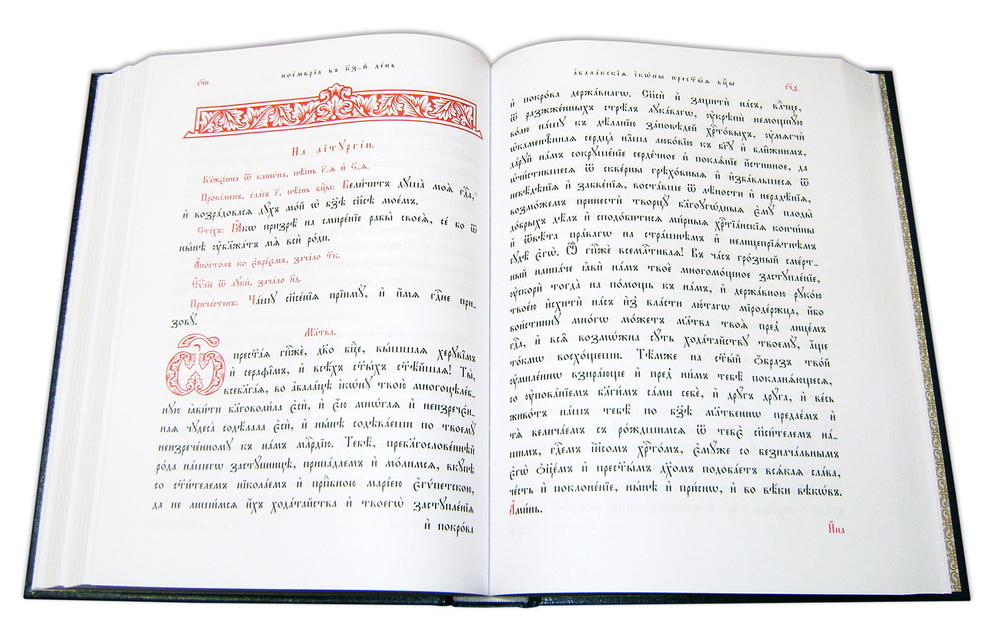 сч҃и
ноемврїа въ к҃з-й де́нь
На літꙋргі́и.
Бл҃же́нна ѿ канѡ́на, пѣ́снь г҃-ѧ и҆ ѕ҃-ѧ.
Проки́менъ, гла́съ г҃, пѣ́снь бц҃ы: Вели́читъ дꙋша̀ моѧ̀ гд҇а,
и҆ возра́довасѧ дꙋ́хъ мо́й ѡ҆ бз҃ѣ сп҃сѣ мое́мъ.
Сті́хъ: Ꙗ҆́кѡ призрѣ̀ на смире́нїе рабы̀ своеѧ̀, се́ бо ѿ
ны́нѣ ᲂу҆блажа́тъ мѧ̀ всѝ ро́ди.
А҆по́столъ ко є҆вре́ємъ, зача́ло т҃к.
Є҆ѵⷢ҇лїе ѿ лꙋкѝ, зача́ло н҃д.
Прича́стенъ: Ча́шꙋ сп҃се́нїѧ прїимꙋ̀, и҆ и҆́мѧ гд҇не при-
зовꙋ̀.
Мл҃тва.
Ѽ прест҃а́ѧ гп҇же́, дв҃о бц҃е, вы́шшаѧ херꙋві̑мъ
и҆ серафі̑мъ, и҆ всѣ́хъ ст҃ы́хъ ст҃ѣ́йшаѧ! Ты̀,
всебл҃га́ѧ, во а҆бала́цѣ і҆кѡ́нꙋ твою̀ многоцѣле́б-
нꙋю ꙗ҆ви́ти бл҃говоли́ла є҆сѝ, и҆ є҆́ю мнѡ́гаѧ и҆ неизрече́н-
наѧ чꙋдеса̀ содѣ́лала є҆сѝ, и҆ ны́нѣ содѣва́еши по твоемꙋ̀
неизрече́нномꙋ къ на́мъ млⷭ҇рдїю. Тебѣ̀, пребл҃гослове́ннѣй
ро́да на́шегѡ застꙋ́пницѣ, припа́даемъ и҆ мо́лимсѧ, вкꙋ́пѣ
со ст҃и́телемъ нїкола́емъ и҆ прпⷣбною марі́ею є҆гѵ́петскою,
да не лиши́мсѧ и҆́хъ хода́тайства и҆ твоегѡ̀ застꙋпле́нїѧ
и҆ покро́ва
а҆бала́кскїѧ і҆кѡ́ны прест҃ы́ѧ бц҃ы
сч҃ѳ.
и҆ покро́ва держа́внагѡ. Сп҃сѝ и҆ защитѝ на́съ, вл҃чце,
ѿ разжже́нныхъ стрѣ́лъ лꙋка́вагѡ, ᲂу҆крѣпѝ немощнꙋ́ю
во́лю на́шꙋ къ дѣ́ланїю за́повѣдей хрⷭ҇то́выхъ, ᲂу҆мѧгчѝ
ѡ҆камене́ннаѧ сердца̀ на̑ша любо́вїю къ бг҃ꙋ и҆ бли́жнимъ,
да́рꙋй на́мъ сокрꙋше́нїе серде́чное и҆ покаѧ́нїе и҆́стинное, да
ѡ҆чи́стившесѧ ѿ скве́рны грѣхо́вныѧ и҆ и҆зба́вльшесѧ ѿ
невѣ́дѣнїѧ и҆ забве́нїѧ, воста́вше ѿ лѣ́ности и҆ нераде́нїѧ,
возмо́жемъ принестѝ творцꙋ̀ бл҃гоꙋго́дныѧ є҆мꙋ̀ плоды̀
до́брыхъ дѣ́лъ и҆ сподо́битисѧ ми́рныѧ хрⷭ҇тїа́нскїѧ кончи́ны
и҆ ѿвѣ́та пра́вагѡ на стра́шнѣмъ и҆ нелицепрїѧ́тнѣмъ
сꙋдѣ̀ є҆гѡ̀. Ѽ гп҇же́ всемл҇тиваѧ! Въ ча́съ гро́зный сме́рт-
ный наипа́че ꙗ҆вѝ на́мъ твоѐ многомо́щное застꙋпле́нїе,
ᲂу҆скорѝ тогда̀ на по́мощь къ на́мъ, и҆ держа́вною рꙋко́ю
твое́ю и҆схитѝ на́съ и҆з̾ вла́сти лю́тагѡ мїроде́ржца, и҆́бо
вои́стиннꙋ мно́гѡ мо́жетъ мл҃тва твоѧ̀ пред̾ лице́мъ
гд҇а, и҆ всѧ̑ возмѡ́жна сꙋ́ть хода́тайствꙋ твоемꙋ̀, а҆́ще
то́кмѡ восхо́щеши. Тѣ́мже на ст҃ы́й ѻ҆́бразъ тво́й
ᲂу҆миле́ннѡ взира́юще и҆ пред̾ ни́мъ тебѣ̀ покланѧ́ющесѧ,
со ᲂу҆пова́нїемъ бл҃ги́мъ са́ми себѐ, и҆ дрꙋ́гъ дрꙋ́га, и҆ ве́сь
живо́тъ на́шъ тебѣ̀ по бз҃ѣ мл҃твеннѡ предае́мъ и҆
тѧ̀ велича́емъ съ ро́ждшимсѧ ѿ тебє̀ сп҃си́телемъ на́-
шимъ, гд҇емъ і҆и҃сомъ хрⷭ҇то́мъ, є҆мꙋ́же со безнача́льнымъ
є҆гѡ̀ ѻ҆ц҃е́мъ и҆ прест҃ы́мъ дх҃омъ подоба́етъ всѧ́каѧ сла́ва,
че́сть и҆ поклоне́нїе, ны́нѣ и҆ при́снѡ, и҆ во вѣ́ки вѣкѡ́въ.
А҆ми́нь.
И҆́на